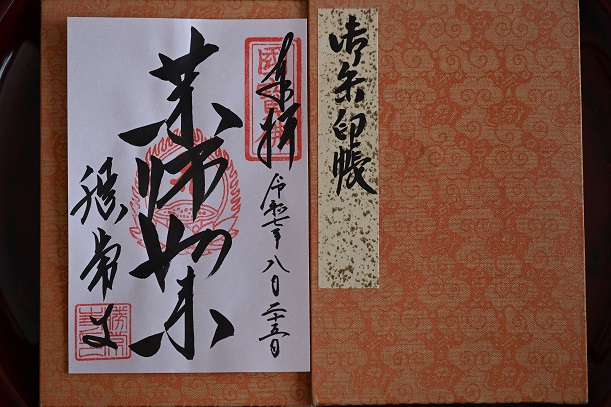 御朱印帳
奉拝
令和七年八月二十五日
薬師如来
勝常寺